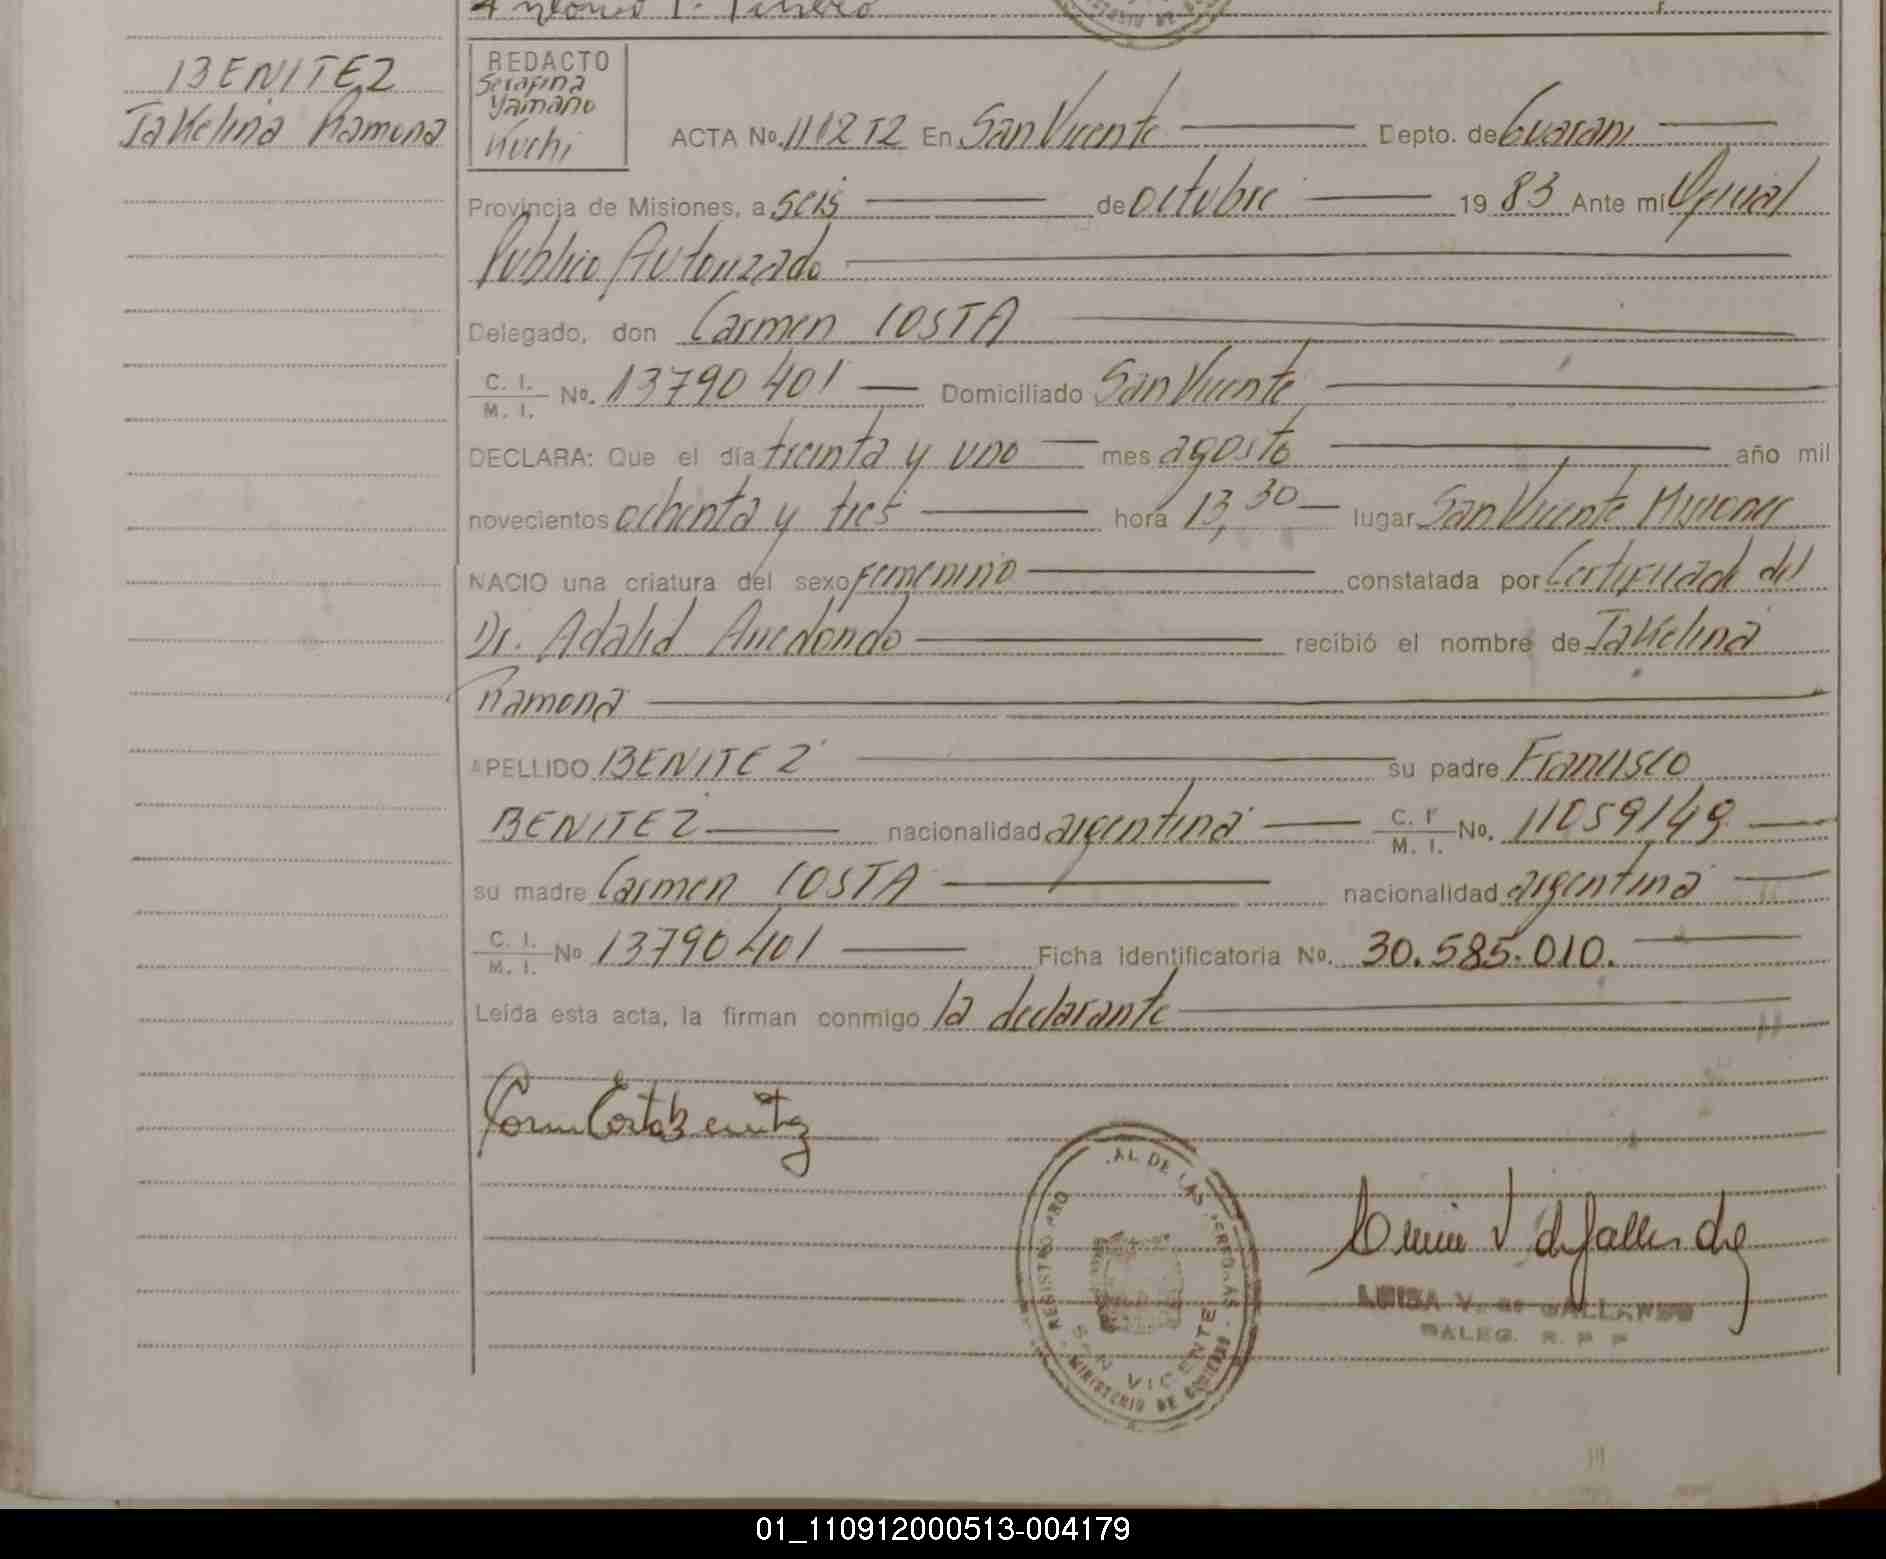 BENITEZ
Jakelina Ramona
REDACTO
Serafina
Yamano
Kuchi
ACTA No. 1112 T2 En San Vicente Depto. de Guarani
Provincia de Misiones, a seis de octubre 19 83 Ante mí Oficial
Publico Autorizado
Delegado, don Carmen COSTA
C. I. / M. I. No. 13790401 Domiciliado San Vicente
DECLARA: Que el día treinta y uno mes agosto año mil
novecientos ochenta y tres hora 13,30 lugar San Vicente Misiones
NACIO una criatura del sexo femenino constatada por Certificado del
Dr. Adalid Arredondo recibió el nombre de Jakelina
Ramona
APELLIDO BENITEZ su padre Francisco
BENITEZ nacionalidad argentina C. I. / M. I. No. 11059149
su madre Carmen COSTA nacionalidad argentina
C. I. / M. I. No 13790401 Ficha identificatoria No. 30.585.010.
Leída esta acta, la firman conmigo la declarante
Costa Benitez
REGISTRO PRO AL DE LAS PERSONAS
SAN VICENTE
MINISTERIO DE GOBIERNO
LUISA V. de GALLARDO
DALEG. R. P. P
01_110912000513-004179